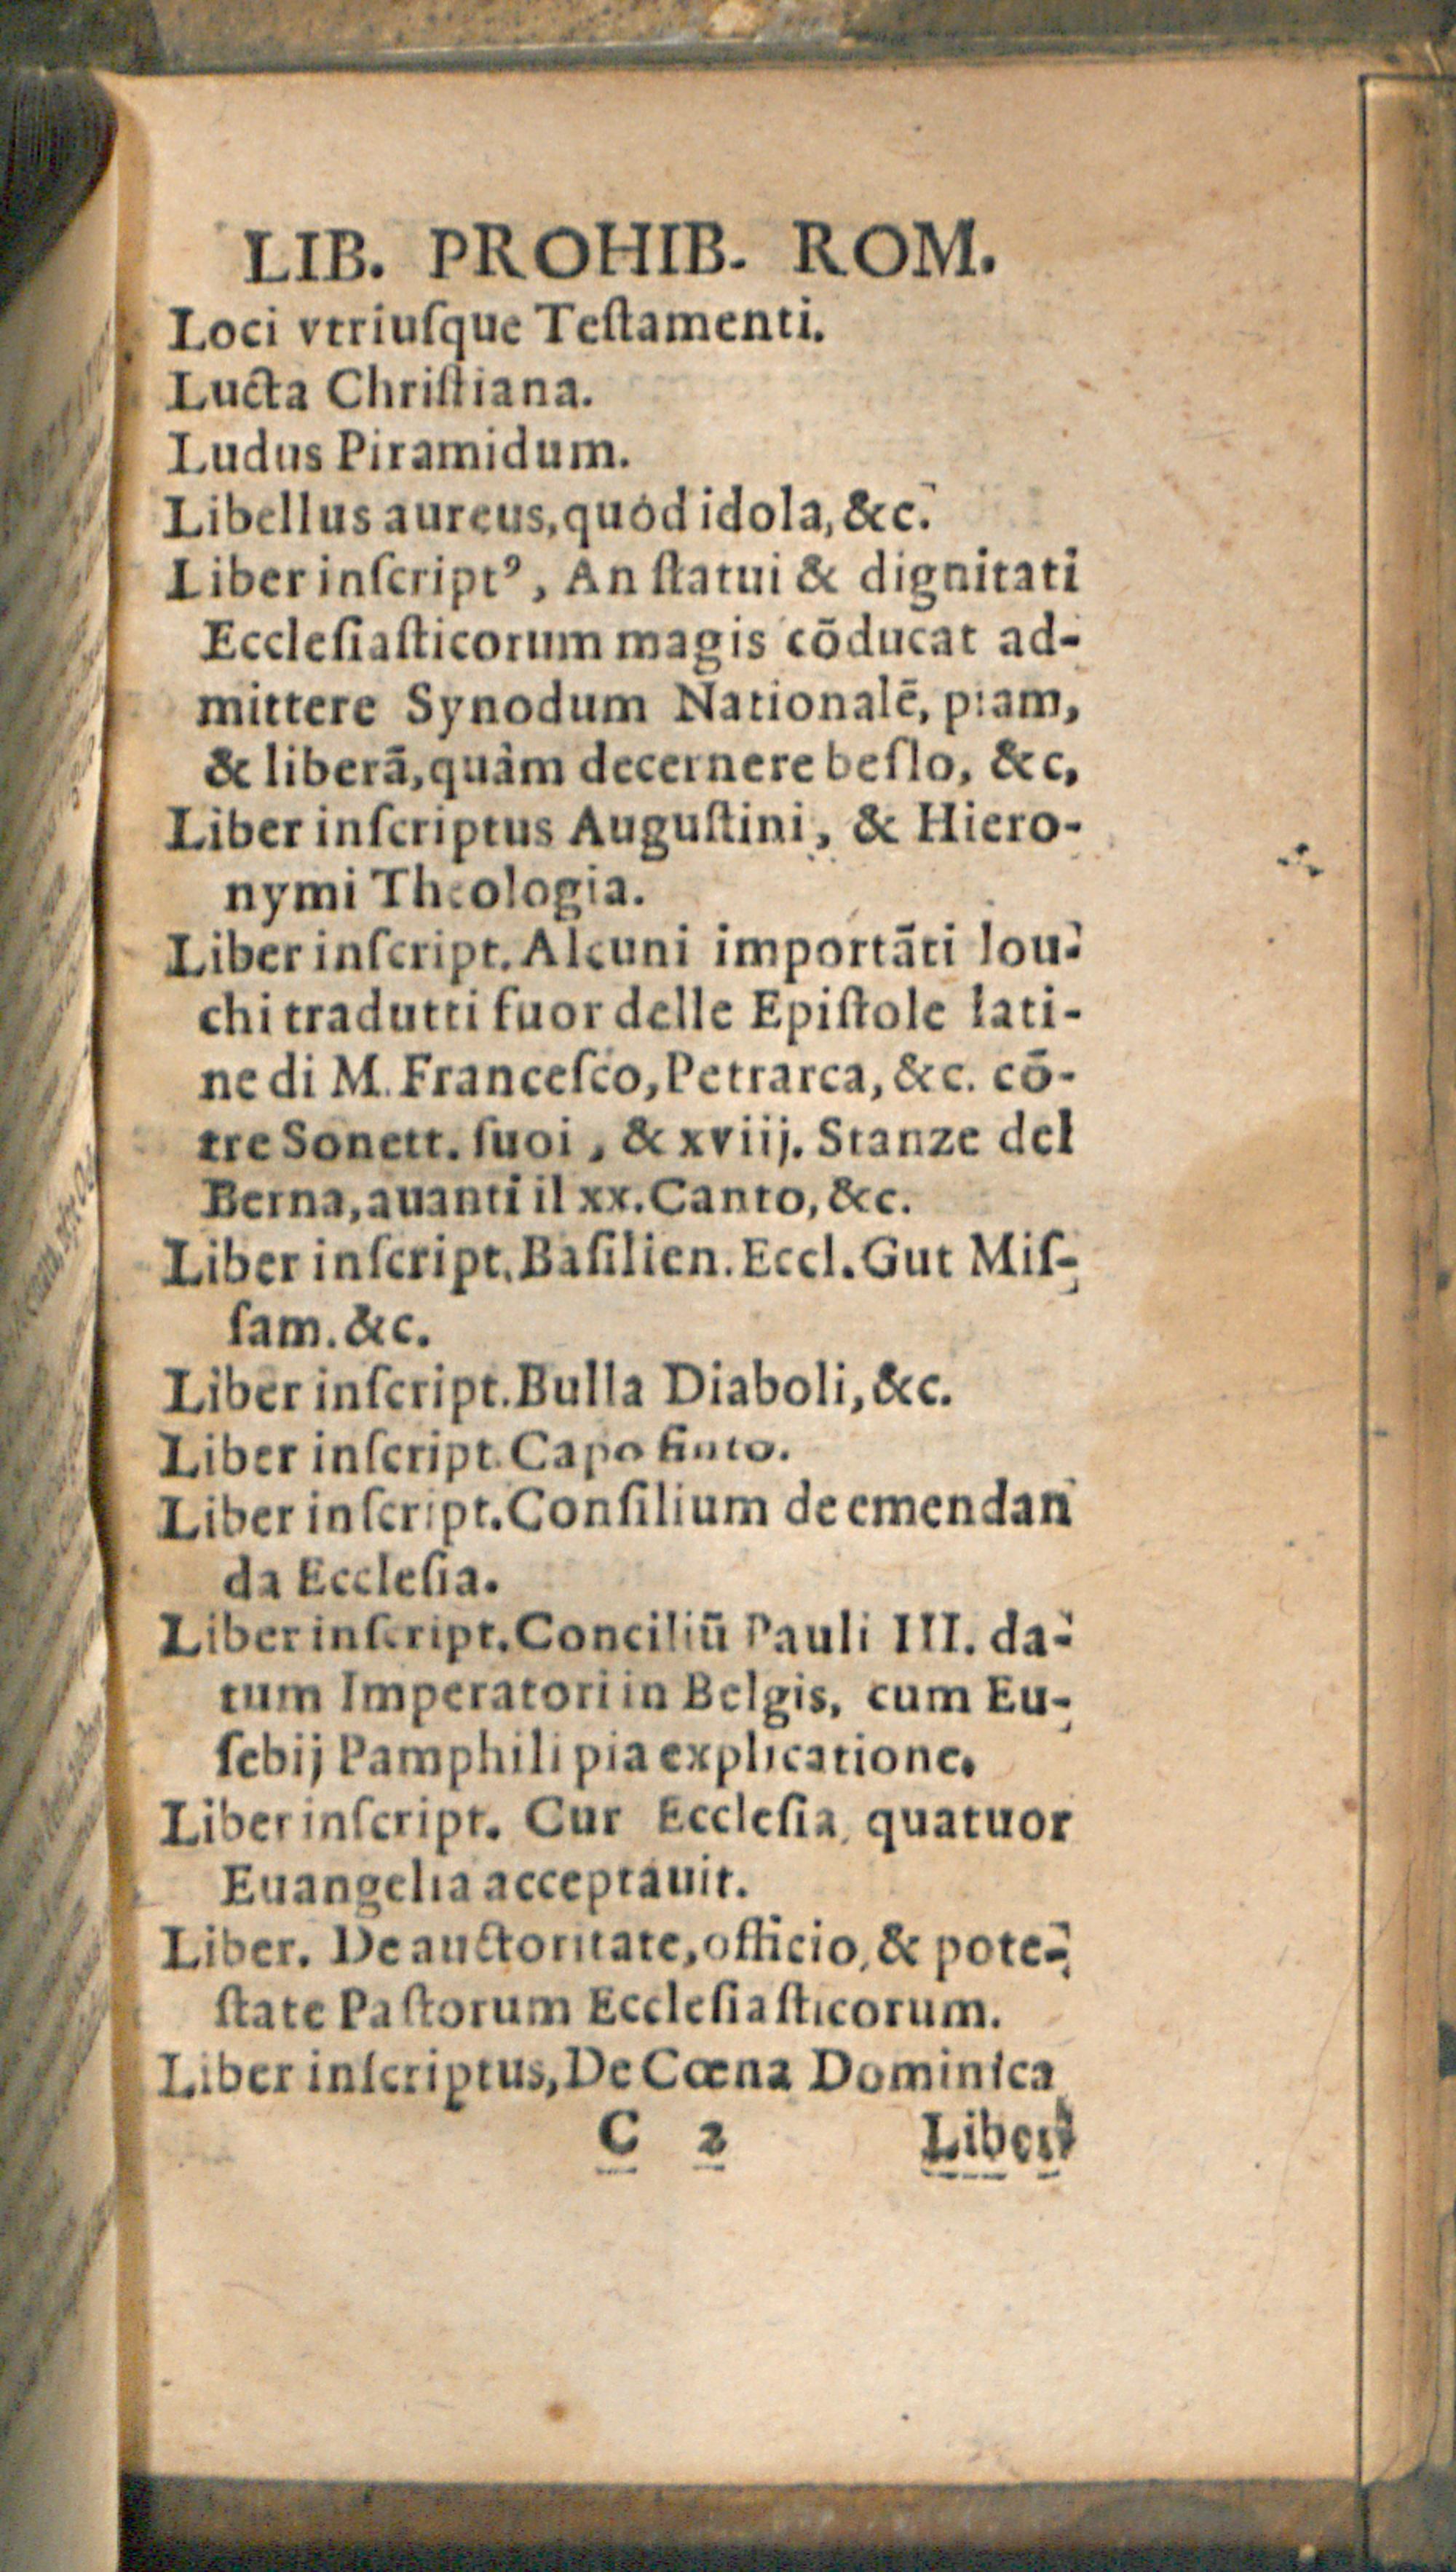 LIB. PROHIB. ROM.
Loci vtriuſque Teſtamenti.
Lucta Chriſtiana.
Ludus Piramidum.
Libellus aureus, quód idola, &c.
Liber inſcriptꝰ, An ſtatui & dignitati
Eccleſiaſticorum magis cōducat ad-
mittere Synodum Nationalē, piam,
& liberā, quàm decernere beſlo, &c,
Liber inſcriptus Auguſtini, & Hiero-
nymi Theologia.
Liber inſcript. Alcuni importāti lou-
chi tradutti fuor delle Epiſtole lati-
ne di M. Franceſco, Petrarca, &c. cō-
tre Sonett. ſuoi, & xviij. Stanze del
Berna, auanti il xx. Canto, &c.
Liber inſcript. Baſilien. Eccl. Gut Miſ-
ſam. &c.
Liber inſcript. Bulla Diaboli, &c.
Liber inſcript. Capo finto.
Liber inſcript. Conſilium de emendan
da Eccleſia.
Liber inſcript. Conciliū Pauli III. da-
tum Imperatori in Belgis, cum Eu-
ſebij Pamphili pia explicatione.
Liber inſcript. Cur Eccleſia, quatuor
Euangelia acceptauit.
Liber. De auctoritate, officio, & pote-
ſtate Paſtorum Eccleſiaſticorum.
Liber inſcriptus, De Cœna Dominica
C 2 Liber